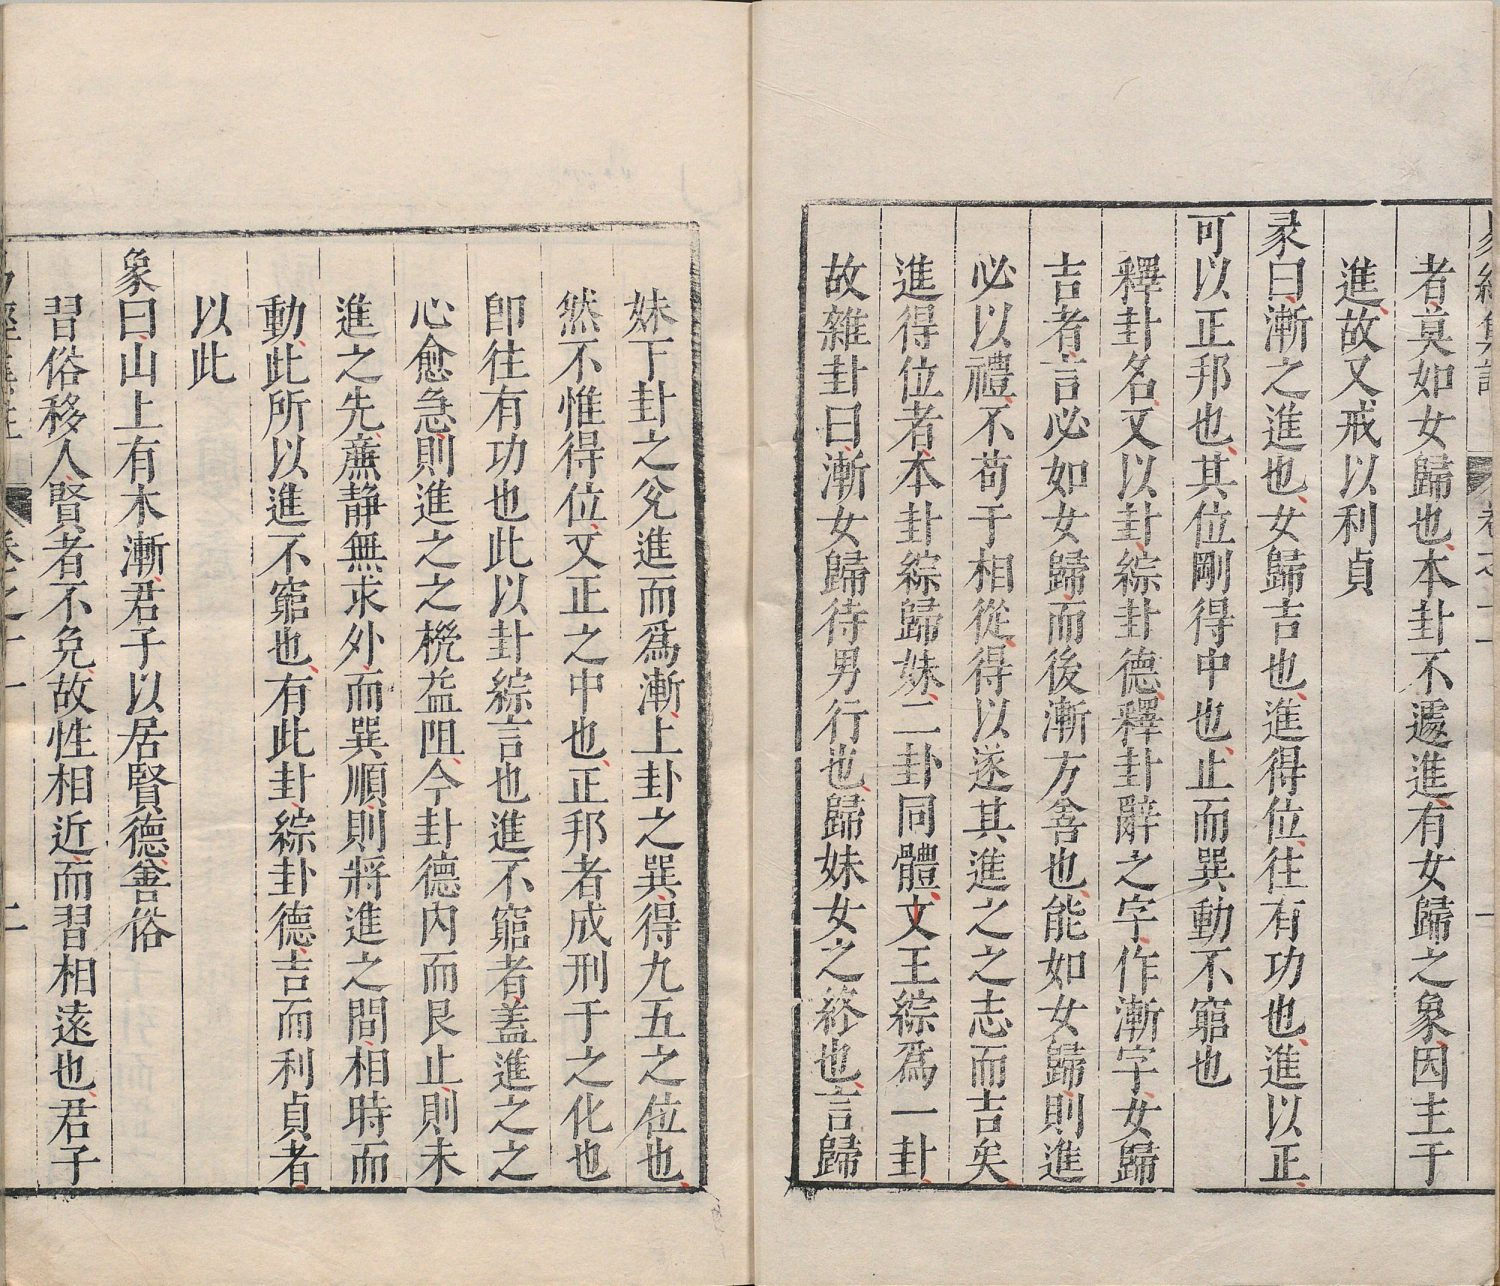 者莫如女歸也本卦不遽進有女歸之象因主于
進故又戒以利貞
彖曰漸之進也女歸吉也進得位往有功也進以正
可以正邦也其位剛得中也止而巽動不窮也
釋卦名又以卦綜卦德釋卦辭之字作漸字女歸
吉者言必如女歸而後漸方善也能如女歸則進
必以禮不苟于相從得以遂其進之之志而吉矣
進得位者本卦綜歸妹二卦同體文王綜爲一卦
故雜卦曰漸女歸待男行也歸妹女之終也言歸
妹下卦之兌進而爲漸上卦之巽得九五之位也
然不惟得位又正之中也正邦者成刑于之化也
卽往有功也此以卦綜言也進不窮者蓋進之之
心愈急則進之之機益阻今卦德內而艮止則未
進之先廉靜無求外而巽順則將進之間相時而
動此所以進不窮也有此卦綜卦德吉而利貞者
以此
象曰山上有木漸君子以居賢德善俗
習俗移人賢者不免故性相近而習相遠也君子